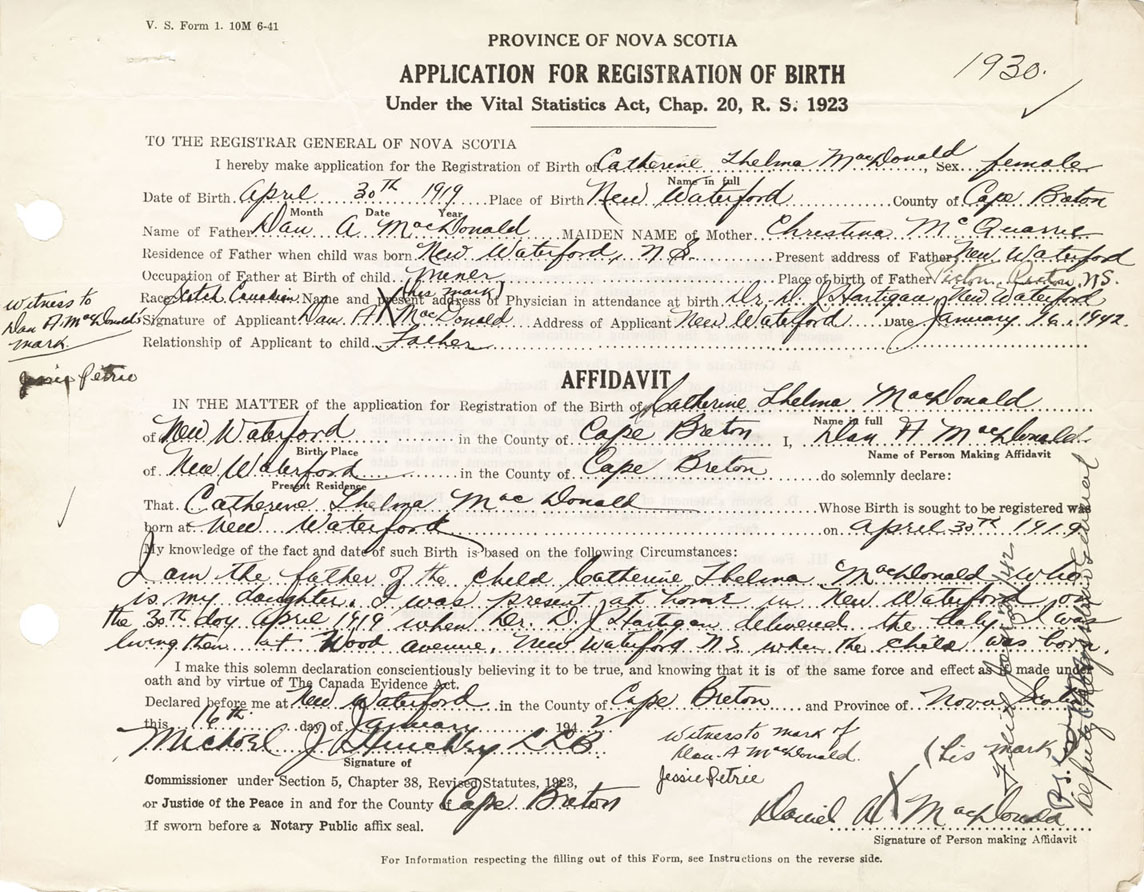 V. S. Form 1. 10M 6-41
PROVINCE OF NOVA SCOTIA
1930.
APPLICATION FOR REGISTRATION OF BIRTH
Under the Vital Statistics Act, Chap. 20, R. S. 1923
TO THE REGISTRAR GENERAL OF NOVA SCOTIA
I hereby make application for the Registration of Birth of Catherine Thelma MacDonald, Sex female
Name in full
Date of Birth April 30th 1919 Place of Birth New Waterford County of Cape Breton
Month Date Year
Name of Father Dan A MacDonald MAIDEN NAME of Mother Christina McQuarrie
Residence of Father when child was born New Waterford, N.S. Present address of Father New Waterford
Occupation of Father at Birth of child miner Place of birth of Father N.S.
Race Scotch Canadian Name and present address of Physician in attendance at birth Dr. D. J. Hartigan, New Waterford
(his mark)
Signature of Applicant Dan. A X MacDonald Address of Applicant New Waterford Date January 16, 1942.
Relationship of Applicant to child Father
Witness to
Dan A. MacDonald's
mark.
Jessie Petrie
AFFIDAVIT
IN THE MATTER of the application for Registration of the Birth of Catherine Thelma MacDonald
Name in full
of New Waterford in the County of Cape Breton I, Dan A MacDonald
Birth Place Name of Person Making Affidavit
of New Waterford in the County of Cape Breton do solemnly declare:
Present Residence
That Catherine Thelma MacDonald Whose Birth is sought to be registered was
born at New Waterford on April 30th 1919
My knowledge of the fact and date of such Birth is based on the following Circumstances:
I am the father of the child Catherine Thelma MacDonald who
is my daughter. I was present at home in New Waterford on
the 30th day April 1919 when Dr. D. J. Hartigan delivered the baby. I was
living then at Wood avenue, New Waterford N.S. when the child was born.
I make this solemn declaration conscientiously believing it to be true, and knowing that it is of the same force and effect as if made under
oath and by virtue of The Canada Evidence Act.
Declared before me at New Waterford in the County of Cape Breton and Province of Nova Scotia
this 16th day of January 1942
Michael J Hinchey LLB
Signature of
Witness to mark of
Dan. A MacDonald.
Jessie Petrie
Commissioner under Section 5, Chapter 38, Revised Statutes, 1923,
or Justice of the Peace in and for the County Cape Breton
If sworn before a Notary Public affix seal.
(his mark
Daniel A X MacDonald
Signature of Person making Affidavit
For Information respecting the filling out of this Form, see Instructions on the reverse side.
Deputy Registrar General